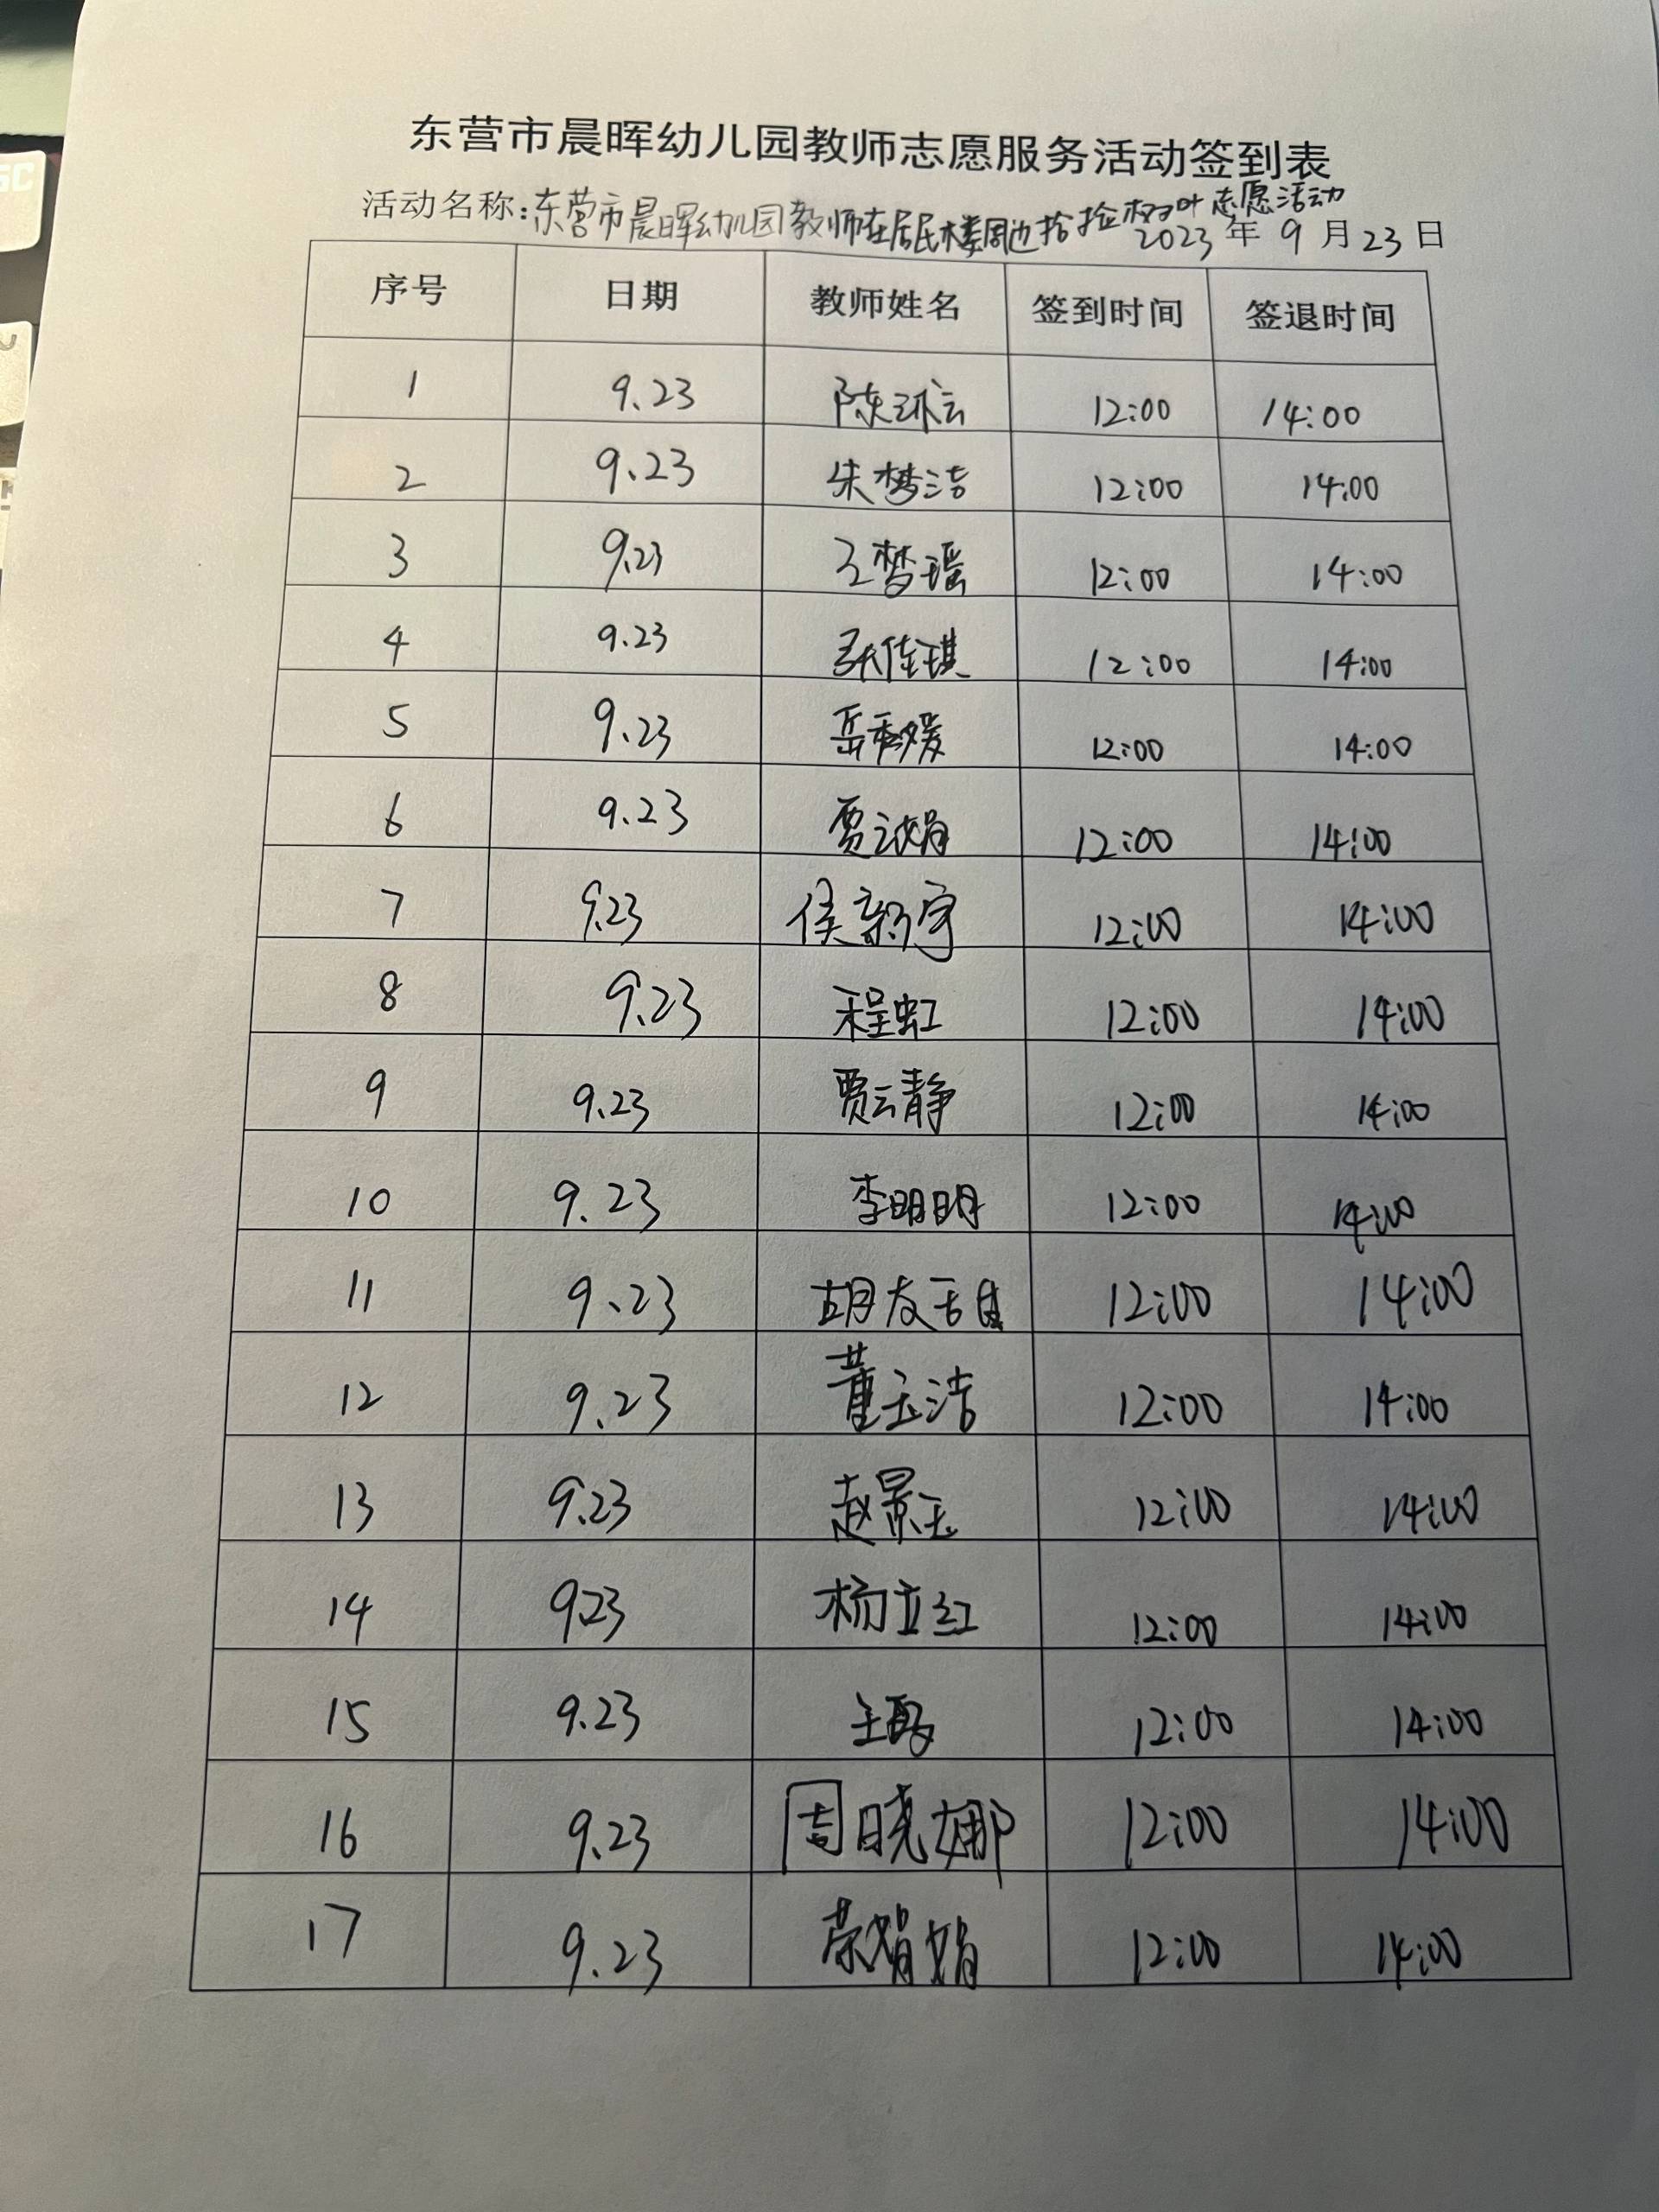 东营市晨晖幼儿园教师志愿服务活动签到表
活动名称:东营市晨晖幼儿园教师在居民楼周边捡拾树叶志愿活动
2023年9月23日
序号 日期 教师姓名 签到时间 签退时间
1 9.23 陈环云 12:00 14:00
2 9.23 朱梦洁 12:00 14:00
3 9.23 王梦瑶 12:00 14:00
4 9.23 张佳琪 12:00 14:00
5 9.23 岳秀媛 12:00 14:00
6 9.23 贾云娟 12:00 14:00
7 9.23 侯新宇 12:00 14:00
8 9.23 程虹 12:00 14:00
9 9.23 贾云静 12:00 14:00
10 9.23 李明明 12:00 14:00
11 9.23 胡友 12:00 14:00
12 9.23 董玉洁 12:00 14:00
13 9.23 赵景玉 12:00 14:00
14 9.23 杨立红 12:00 14:00
15 9.23 王 12:00 14:00
16 9.23 周晓娜 12:00 14:00
17 9.23 荣娟娟 12:00 14:00